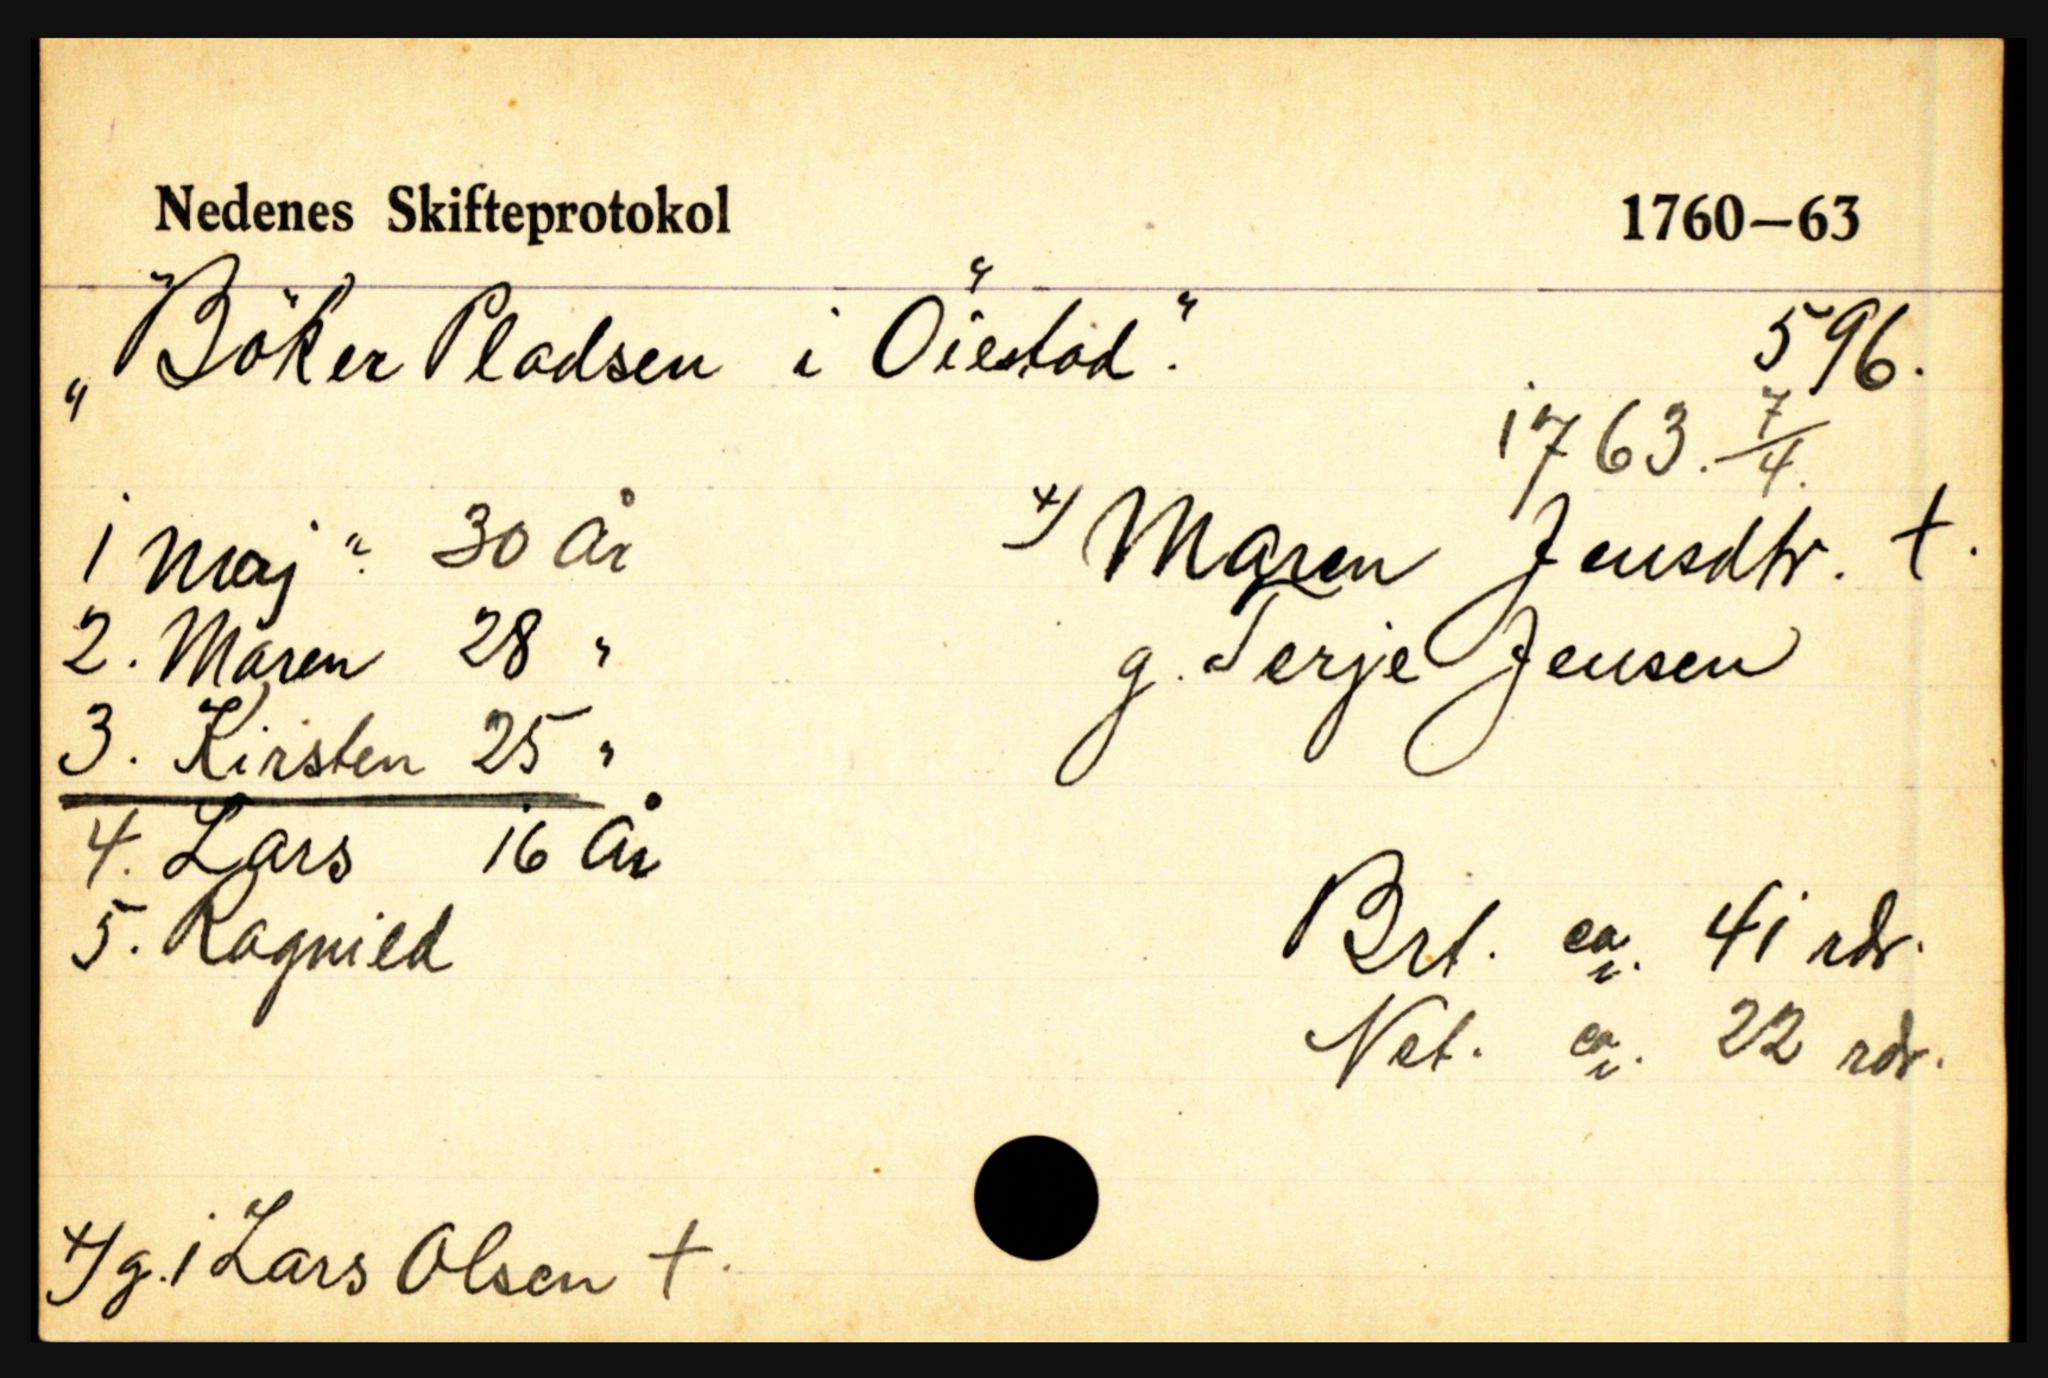 Nedenes Skifteprotokol 1760—63
„Böker Pladsen i Öiestad." 596.
1763. 7/4.
1 Maj ". 30 År +) Maren Jensdtr. †.
2. Maren 28 " g. Terje Jensen
3. Kirsten 25 "
4. Lars 16 År
5. Ragnild Brt. ca. 41 rdr.
Net. ca. 22 rdr.
+) g. 1 Lars Olsen †.